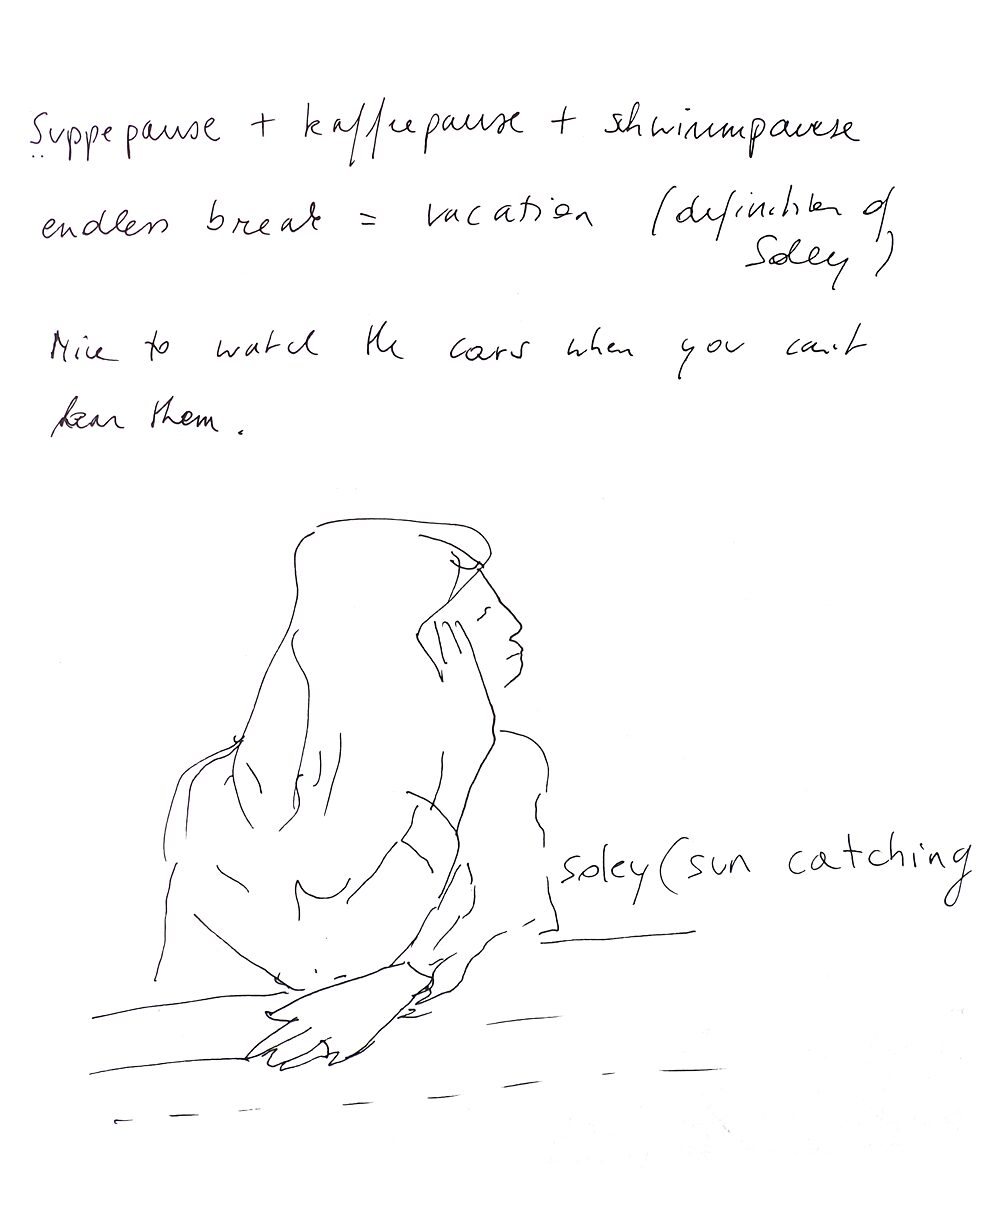 Suppepause + kaffeepause + schwimmpause
endless break = vacation (definition of
Soley)
Nice to watch the cars when you can't
hear them.
soley (sun catching